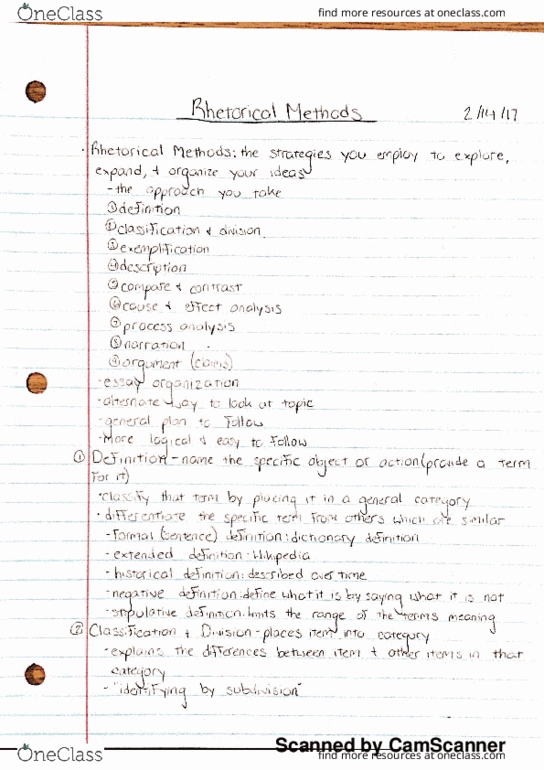 OneClass
find more resources at oneclass.com
Rhetorical Methods
2/14/17
· Rhetorical Methods: the strategies you employ to explore,
expand, + organize your ideas
- the approach you take
① definition
② classification + division
③ exemplification
④ description
⑤ compare + contrast
⑥ cause + effect analysis
⑦ process analysis
⑧ narration
⑨ argument (claims)
- essay organization
- alternate way to look at topic
- general plan to follow
- more logical + easy to follow
① Definition - name the specific object or action (provide a term
for it)
· classify that term by placing it in a general category
· differentiate the specific term from others which are similar
- formal (sentence) definition: dictionary definition
- extended definition: Wikipedia
- historical definition: described over time
- negative definition: define what it is by saying what it is not
- stipulative definition: limits the range of the terms meaning
② Classification + Division - places item into category
- explains the differences between item + other items in that
category
- "identifying by subdivision"
Scanned by CamScanner
OneClass
find more resources at oneclass.com